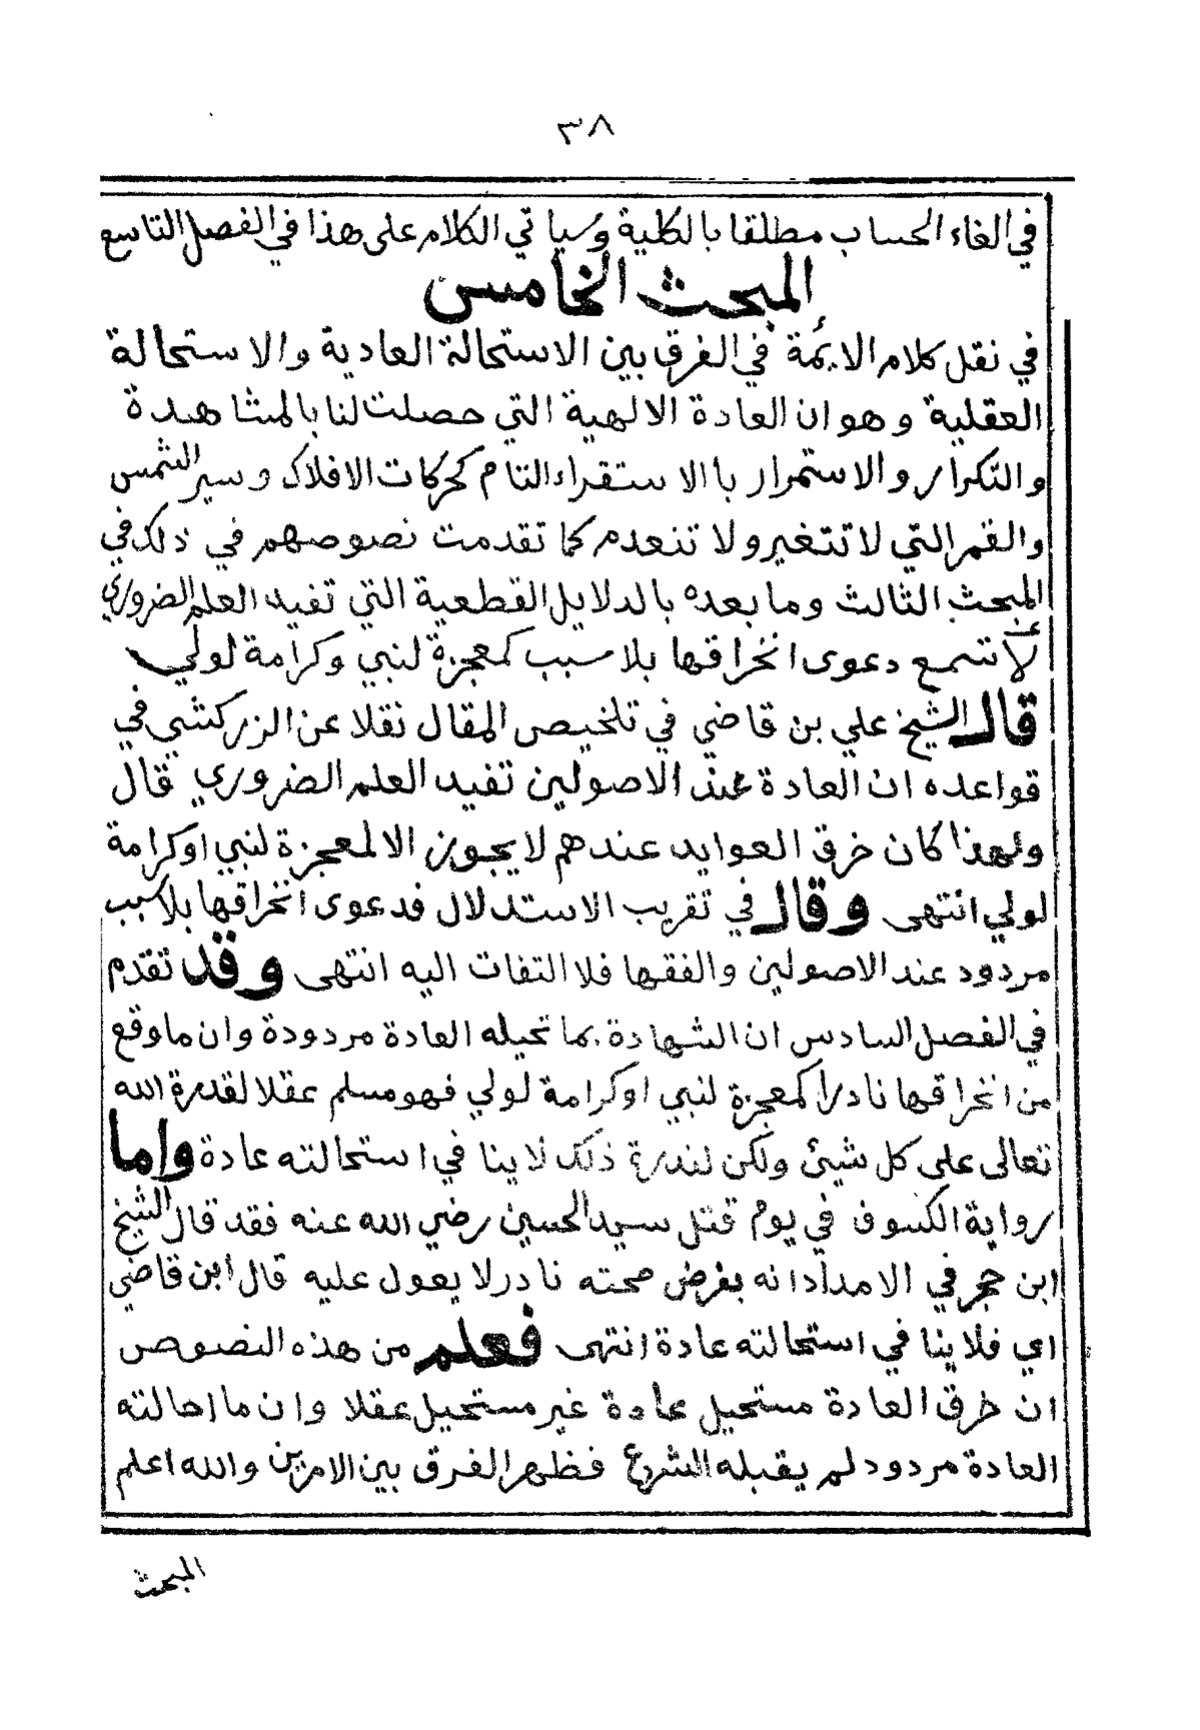 ٣٨
في الغاء الحساب مطلقا بالكلية وسيا تي الكلام على هذا في الفصل التاسع
المبحث الخامس
في نقل كلام الايمة في الفرق بين الاستحالة العادية والاستحالة
العقلية وهو ان العادة الالهية التي حصلت لنا بالمشاهدة
والتكرار والاستمرار بالاستقراء التام كحركات الافلاك وسير الشمس
والقمر التي لا تتغير ولا تنعدم كما تقدمت نصوصهم في ذلك في
المبحث الثالث وما بعده بالدلايل القطعية التي تفيد العلم الضروري
لا تسمع دعوى انخراقها بلا سبب كمعجزة لنبي وكرامة لولي
قال الشيخ علي بن قاضي في تلخيص المقال نقلا عن الزركشي في
قواعده ان العادة عند الاصولين تفيد العلم الضروري قال
ولهذا كان خرق العوايد عندهم لا يجوز الا لمعجزة لنبي او كرامة
لولي انتهى وقال في تقريب الاستدلال فدعوى انخراقها بلا سبب
مردود عند الاصولين والفقها فلا التفات اليه انتهى وقد تقدم
في الفصل السادس ان الشهادة بما تحيله العادة مردودة وان ما وقع
من انخراقها نادرا كمعجزة لنبي او كرامة لولي فهو مسلم عقلا لقدرة الله
تعالى على كل شيئ ولكن لندرة ذلك لا ينا في استحالته عادة واما
رواية الكسوف في يوم قتل سيد الحسين رضي الله عنه فقد قال الشيخ
ابن حجر في الامداد انه بفرض صحته نادر لا يعول عليه قال ابن قاضي
اي فلا ينا في استحالته عادة انتهى فعلم من هذه النصوص
ان خرق العادة مستحيل عادة غير مستحيل عقلا وان ما احالته
العادة مردود لم يقبله الشرع فظهر الفرق بين الامرين والله اعلم
المبحث